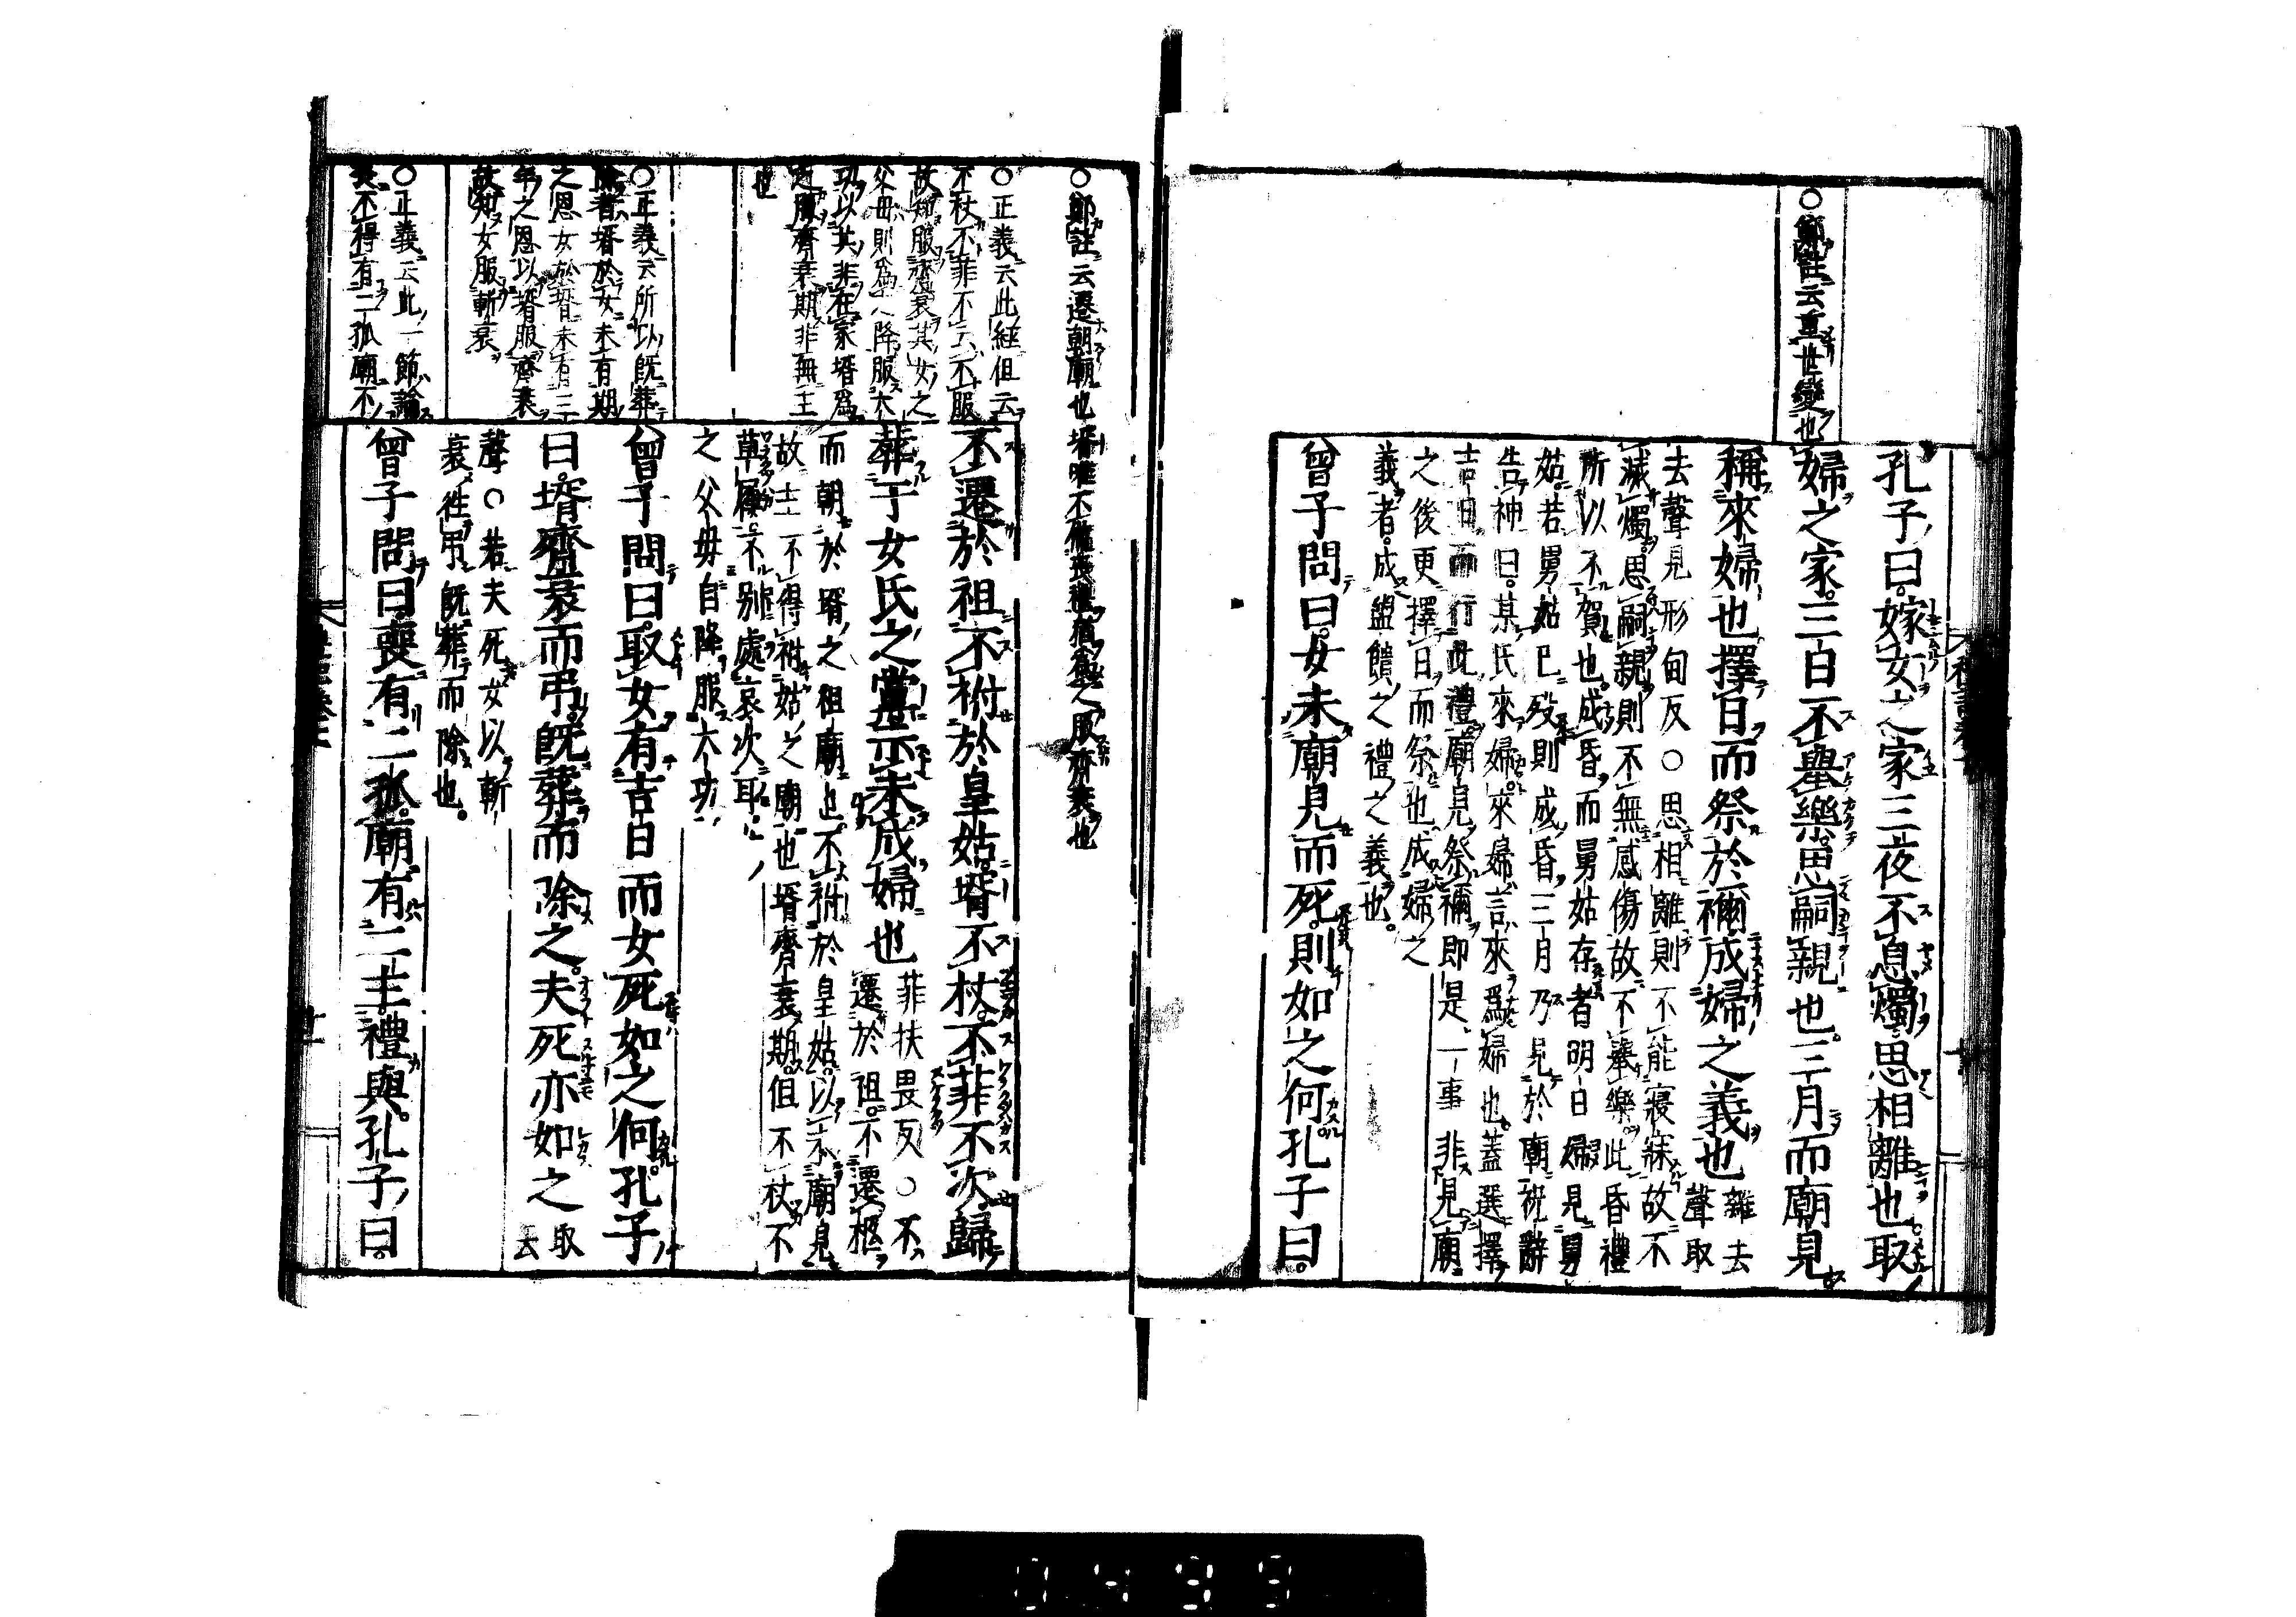 ○鄭註云重世變也
孔子曰。嫁女之家三夜不息燭。思相離也。取
婦之家。三日不舉樂。思嗣親也。三月而廟見
稱來婦也擇日而祭於禰成婦之義也 離去聲取
去聲見形甸反○思相離則不能寢寐故不
滅燭。思嗣親則不無感傷故不舉樂。此昏禮
所以不賀也。成昏而舅姑存者明日婦見舅
姑。若舅姑已歿則成昏三月乃見於廟祝辭
告神曰。某氏來婦。來婦言來爲婦也。蓋選擇
吉日而行此禮廟見祭禰即是一事非見廟
之後更擇日而祭也。成婦之
義者。成盥饋之禮之義也。
曾子問曰。女未廟見而死。則如之何孔子曰。
○鄭註云遷朝廟也壻唯不備喪禮猶爲之服齊衰也
○正義云此經但云
不杖不菲不云不服
故知服齊衰其女之
父母則爲之降服大
功以其非在家壻爲
之服齊衰期非無主
也
○正義云所以既葬
除者壻於女未有期
之恩女於壻未有三
年之恩以壻服齊衰
故知女服斬衰
○正義云此一節論
喪不得有二孤廟不
不遷於祖不祔於皇姑。壻不杖。不菲不次。歸
葬于女氏之黨。示未成婦也 菲扶畏反○不
遷於祖。不遷柩
而朝於壻之祖廟也。不祔於皇姑。以未廟見
故主不得祔姑之廟也壻齊衰期。但不杖不
草屨。不別處哀次耳。女
之父母自降服大功
曾子問曰。取女有吉日而女死如之何。孔子
曰。壻齊衰而弔。既葬而除之。夫死亦如之 取去
聲○若夫死女以斬
衰往弔既葬而除也。
曾子問曰。喪有二孤。廟有二主。禮與。孔子曰。